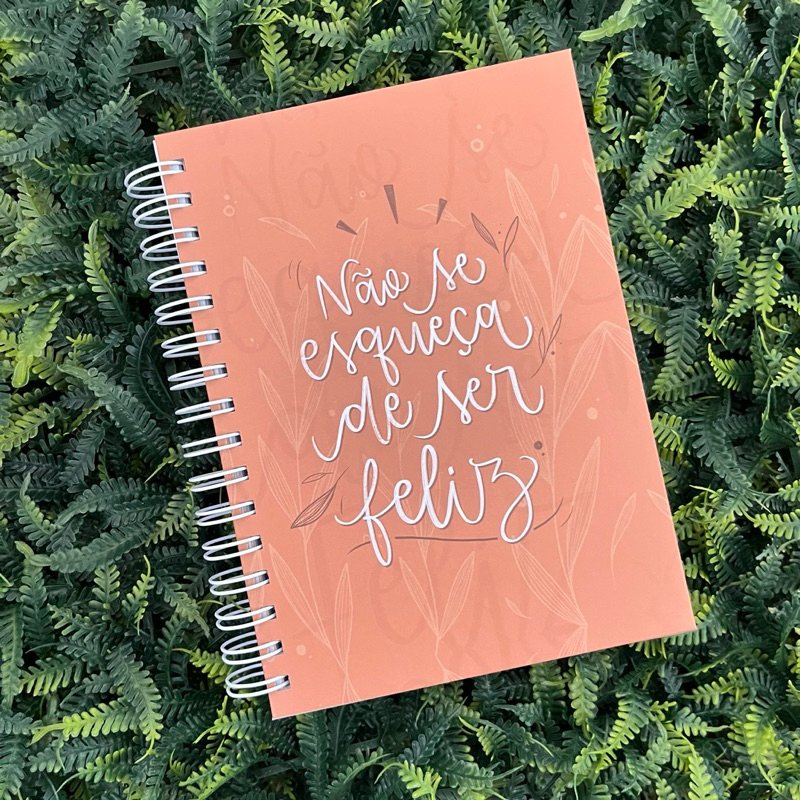 Não se
esqueça
de ser
feliz